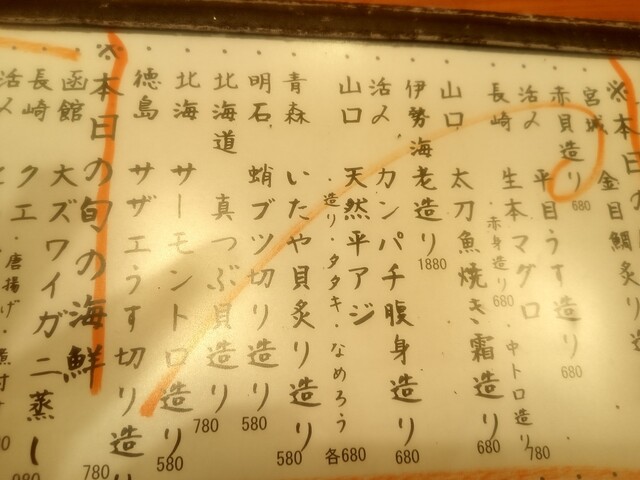 ※本日の
宮城 金目鯛炙り造
赤貝造り 680
活〆 平目うす造り 680
長崎 生本マグロ
・赤身造り 680 ・中トロ造り 780
山口 太刀魚焼き霜造り 680
伊勢海老造り 1880
活〆 カンパチ腹身造り 680
山口 天然平アジ
・造り・タタキ・なめろう 各680
青森 いたや貝炙り造り 580
明石 蛸ブツ切り造り 580
北海道 真つぶ貝造り 780
北海 サーモントロ造り 580
徳島 サザエうす切り造り 780
※本日の旬の海鮮
函館 大ズワイガニ蒸し
長崎 クエ
・唐揚げ
活〆